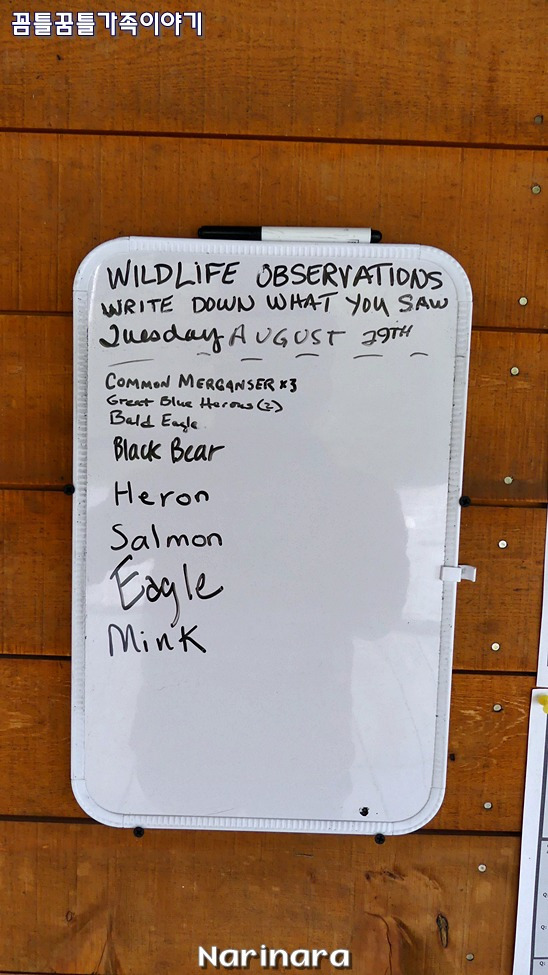 꼼틀꿈틀가족이야기
WILDLIFE OBSERVATIONS
WRITE DOWN WHAT YOU SAW
Tuesday AUGUST 29TH
COMMON MERGANSER x3
Great Blue Herons (2)
Bald Eagle
Black Bear
Heron
Salmon
Eagle
Mink
Narinara